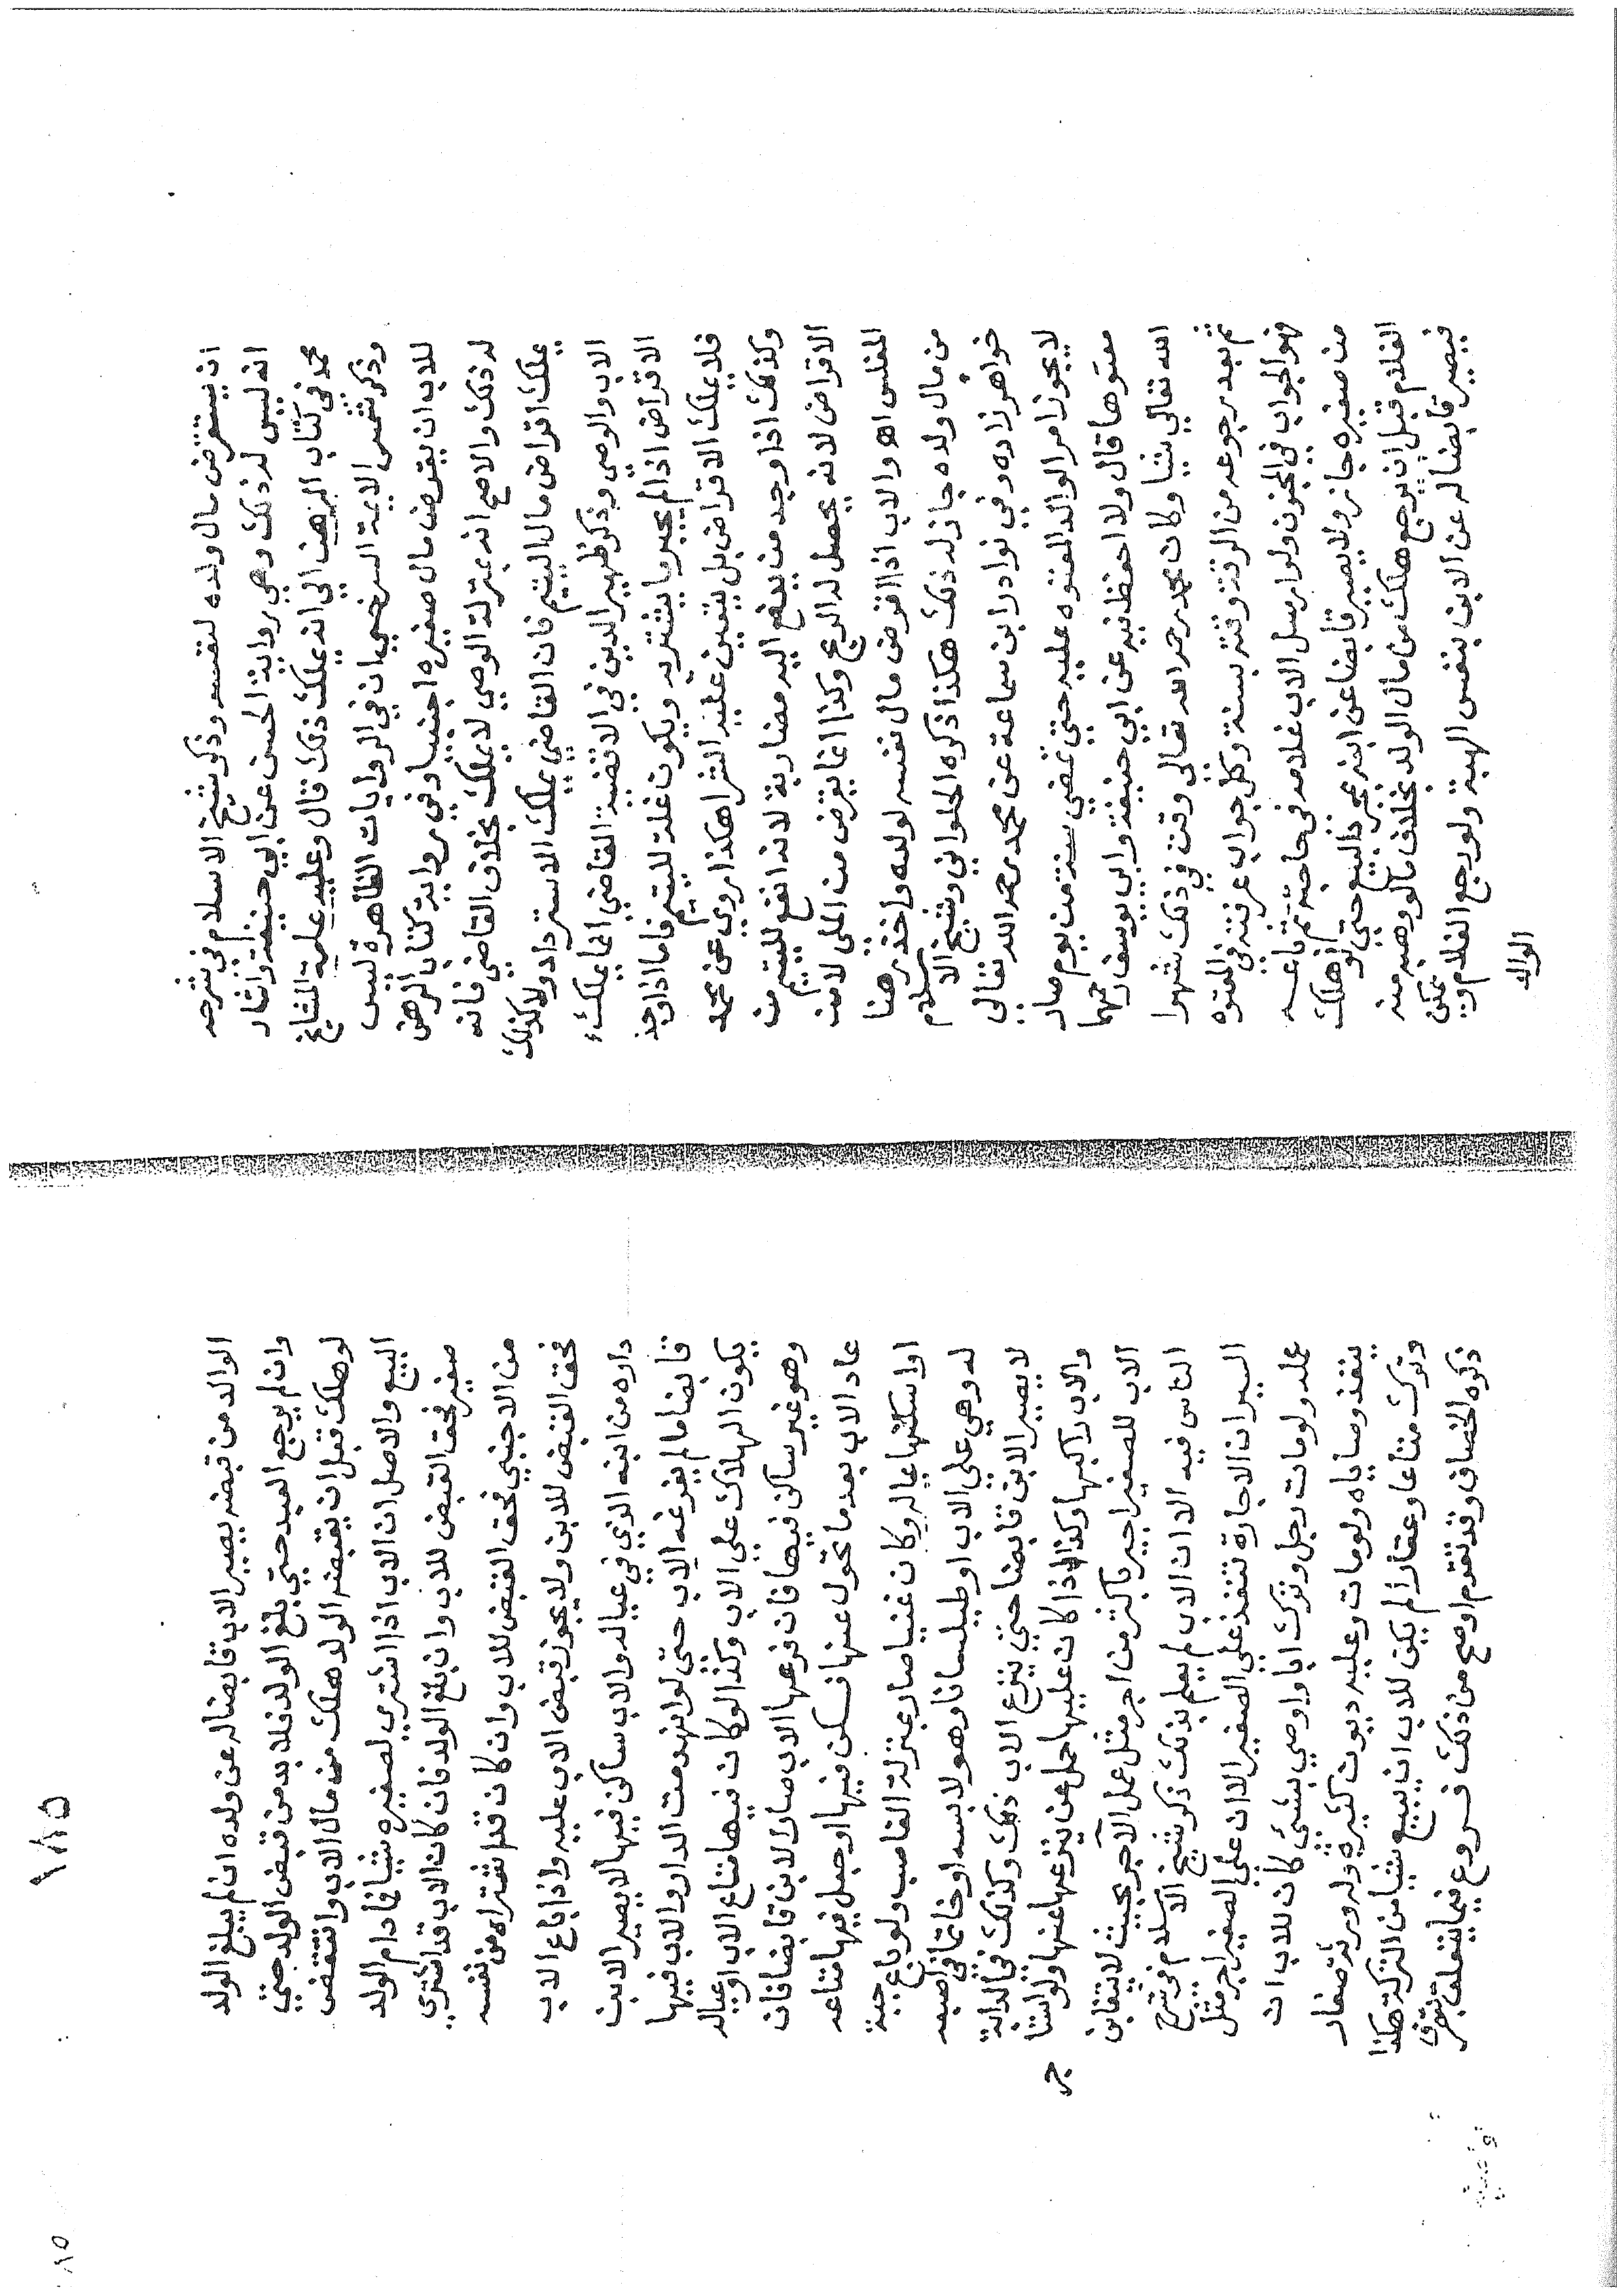 ان يستقرض مال ولده لنفسه وذكر شيخ الاسلام في شرحه
انه ليس له ذلك وهي رواية الحسن عن ابي حنيفة واشار
محمد في كتاب الرهن الي انه يملك ذلك قال وعليه عامة المشايخ
وذكر شمس الايمة السرخسي ان في الروايات الظاهرة ليس
للاب ان يقرض مال صغيره اجنبيا وفي رواية كتاب الرهن
له ذلك والاصح انه بمنزلة الوصي لا يملك بخلاف القاضي فانه
يملك اقراض مال اليتيم فان القاضي يملك الاسترداد ولا كذلك
الاب والوصي وذكر ظهير الدين في الاقضية القاضي انما يملك
الاقراض اذا لم يجد ما يشتريه ويكون غلة لليتيم فاما اذا وجد
فلا يملك الاقراض بل يتعين عليه الشرا هكذا روي عن محمد
وكذلك اذا وجد من يدفع اليه مضاربة لانه انفع لليتيم من
الاقراض لانه يحصل له الربح وكذا انما يقرض من الملي لا من
المفلس اهـ والاب اذا اقرض مال نفسه لولده واخذ رهنا
من مال ولده جاز له ذلك هكذا ذكره الحلواني وشيخ الاسلام
خواهرزاده وفي نوادر ابن سماعة عن محمد رحمه الله تعالي
لا يجوز امر الوالد المعتوه عليه حتي تمضي سنة من يوم صار
معتوها قال ولا احفظ فيه عن ابي حنيفة وابي يوسف رحمهما
الله تعالي شيا وكان محمد رحمه الله تعالي وقت في ذلك شهرا
ثم بعد رجوعه من الرقة وقته بسنة وكل جواب عرفته في المعتوه
فهو الجواب في المجنون ولو ارسل الاب غلامه في حاجته ثم باعه
من صغيره جاز ولا يصير قابضا عن ابنه بمجرد البيع حتي لو هلك
الغلام قبل ان يرجع هلك من مال الولد بخلاف ما لو وهبه منه
فيصير قابضا له عن الابن بنفس الهبة ولو رجع الغلام ويمكن
الوالد
١٨٥
الوالد من قبضه يصير الاب قابضا له عن ولده ان لم يبلغ الولد
وان لم يرجع العبد حتي بلغ الولد فلا بد من قبض الولد حتي
لو هلك قبل ان يقبضه الولد هلك من مال الاب وانتقض
البيع والاصل ان الاب اذا اشتري لصغيره شيا فما دام الولد
صغير فحق القبض للاب وان بلغ الولد فان كان الاب قد اشتري
من الاجنبي فحق القبض للاب وان كان قد اشتراه من نفسه
فحق القبض للابن ولا يجوز قبض الاب عليه واذا باع الاب
داره من ابنه الذي في عياله والاب ساكن فيها لا يصير الابن
قابضا ما لم يفرغه الاب حتي لو انهدمت الدار والاب فيها
يكون الهلاك علي الاب وكذا لو كان فيها متاع الاب او عياله
وهو غير ساكن فيها فان فرغها الاب صار الابن قابضا فان
عاد الاب بعد ما تحول عنها فسكن فيها او جعل فيها متاعه
او اسكنها عياله وكان غنيا صار بمنزلة الغاصب ولو باع جبة
له وهي علي الاب او طيلسانا وهو لابسه او خاتما في اصبعه
لا يصير الابن قابضا حتي ينزع الاب ذلك وكذلك في الدابة
والاب راكبها وكذا اذا كان عليها حمل حتي ينزعها عنها ولو استاجر
الاب للصغير اجيرا باكثر من اجر مثل عمل الآجر بحيث لا يتغابن
الناس فيه الا ان الاب لم يعلم بذلك ذكر شيخ الاسلام في شرح
السير ان الاجارة تنفذ علي الصغير الا ان علي الصغير اجر مثل
عمله ولو مات رجل وترك ابا واوصي بشيء كان للاب ان
ينفذ وصاياه ولو مات وعليه ديون كثيرة وله ورثة صغار
وترك متاعا وعقارا لم يكن للاب ان يبيع شيا من التركة هكذا
ذكره الخصاف وقد تقدم اوضح من ذلك فروع فيما يتعلق بتصرف